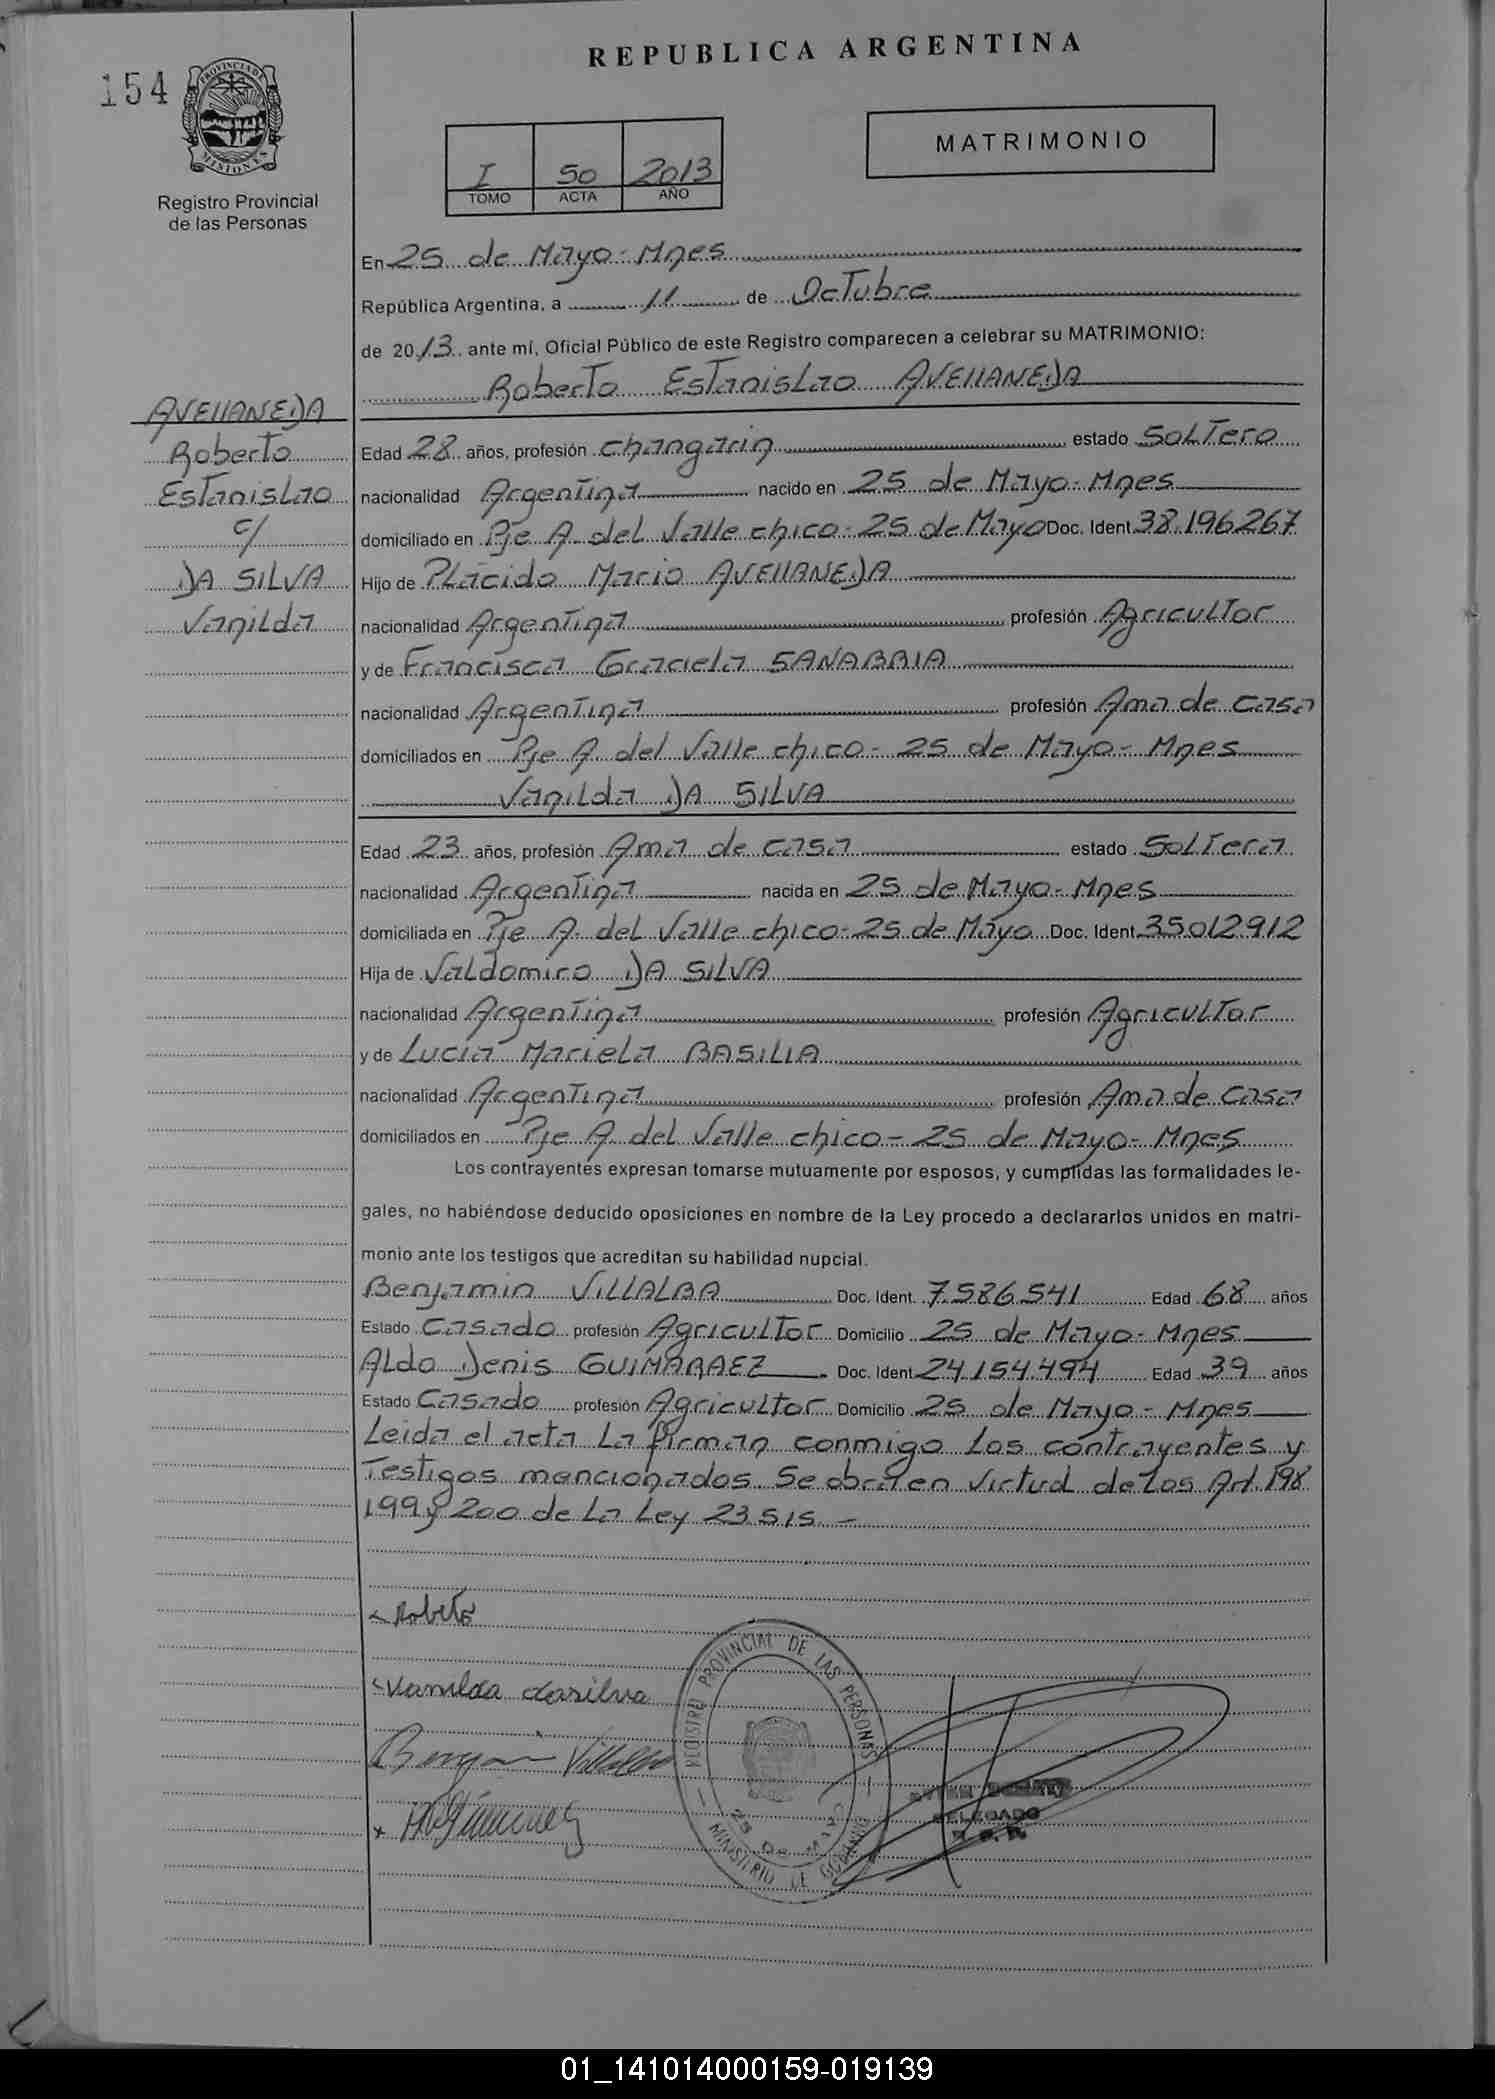 REPUBLICA ARGENTINA
154
PROVINCIA DE
MISIONES
Registro Provincial
de las Personas
MATRIMONIO
I 50 2013
TOMO ACTA AÑO
En 25 de Mayo - Mnes
República Argentina, a 11 de Octubre
de 2013 ante mí, Oficial Público de este Registro comparecen a celebrar su MATRIMONIO:
Roberto Estanislao AVELLANEDA
AVELLANEDA
Roberto
Estanislao
c/
DA SILVA
Vanilda
Edad 28 años, profesión changarin estado Soltero
nacionalidad Argentina nacido en 25 de Mayo - Mnes
domiciliado en Pje A. del Valle chico - 25 de Mayo Doc. Ident. 38.196.267
Hijo de Plácido Mario AVELLANEDA
nacionalidad Argentina profesión Agricultor
y de Francisca Graciela SANABRIA
nacionalidad Argentina profesión Ama de casa
domiciliados en Pje A. del Valle chico - 25 de Mayo - Mnes
Vanilda DA SILVA
Edad 23 años, profesión Ama de casa estado Soltera
nacionalidad Argentina nacida en 25 de Mayo - Mnes
domiciliada en Pje A. del Valle chico - 25 de Mayo Doc. Ident. 35012912
Hija de Valdomiro DA SILVA
nacionalidad Argentina profesión Agricultor
y de Lucia Mariela BASILIA
nacionalidad Argentina profesión Ama de casa
domiciliados en Pje A. del Valle chico - 25 de Mayo - Mnes
Los contrayentes expresan tomarse mutuamente por esposos, y cumplidas las formalidades le-
gales, no habiéndose deducido oposiciones en nombre de la Ley procedo a declararlos unidos en matri-
monio ante los testigos que acreditan su habilidad nupcial.
Benjamin VILLALBA Doc. Ident. 7.586.541 Edad 68 años
Estado Casado profesión Agricultor Domicilio 25 de Mayo - Mnes
Aldo Denis GUIMARAEZ Doc. Ident. 24.154.494 Edad 39 años
Estado Casado profesión Agricultor Domicilio 25 de Mayo - Mnes
Leida el acta la firman conmigo los contrayentes y
Testigos mencionados. Se obra en virtud de los Art. 198
199 y 200 de la Ley 23.515 -
Roberto
Vanilda dasilva
Benjamin Villalba
REGISTRO PROVINCIAL DE LAS PERSONAS
25 DE MAYO
MINISTERIO DE GOBIERNO
DELEGADO
01_141014000159-019139